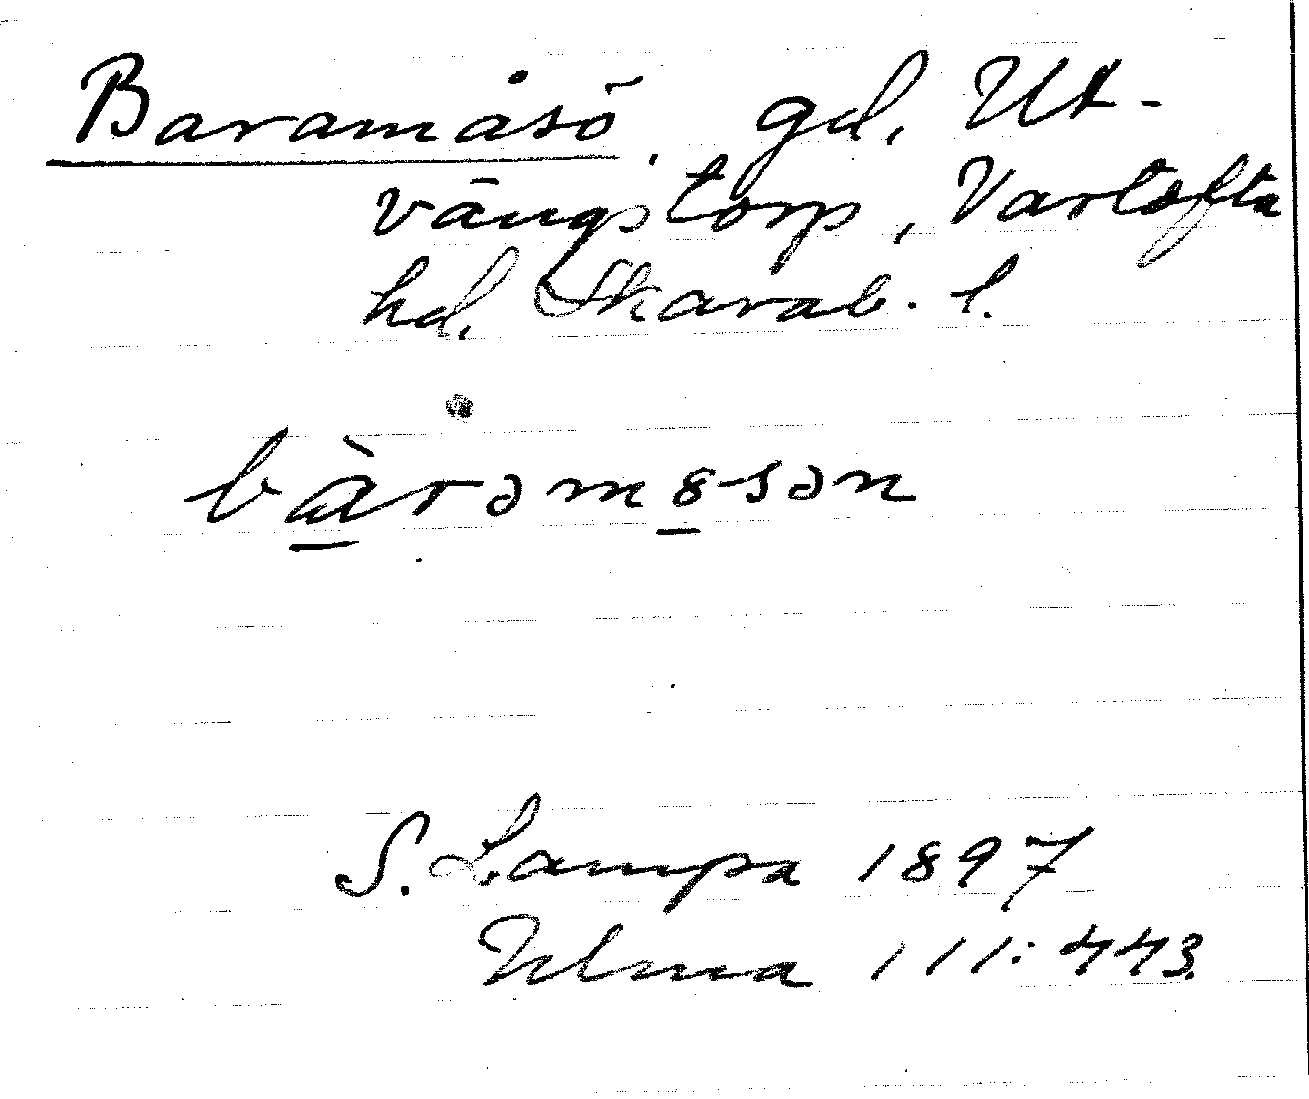 Baramåsö, gd, Ut-
vängstorp, Vartofta
hd, Skarab. l.
bàrəmɞsən
S. Lampa 1897
Ulma 111:443.